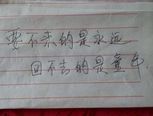 要不来的是永远
回不去的是童年